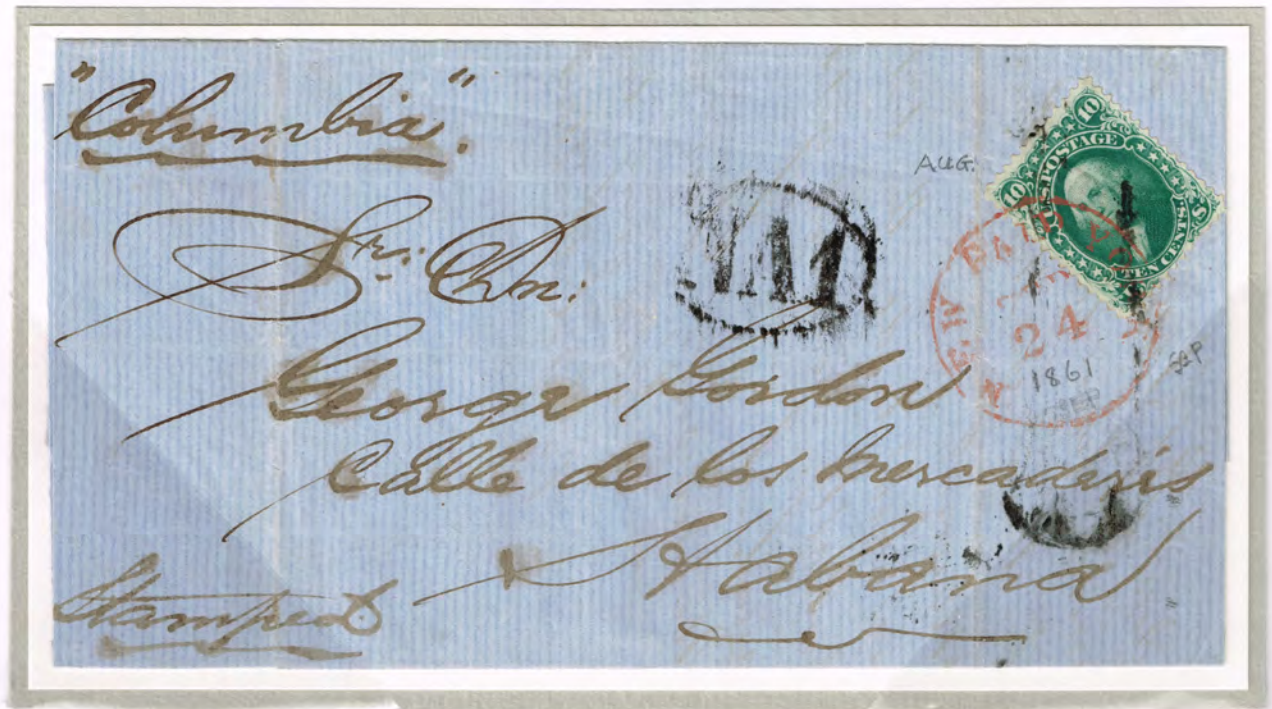 "Columbia".
AUG.
10 U.S. POSTAGE 10
TEN CENTS
NEW PAID
24
1861
SEP
Sr: Dn:
George Gordon
Calle de los Mercaderis
Habana
Stamped